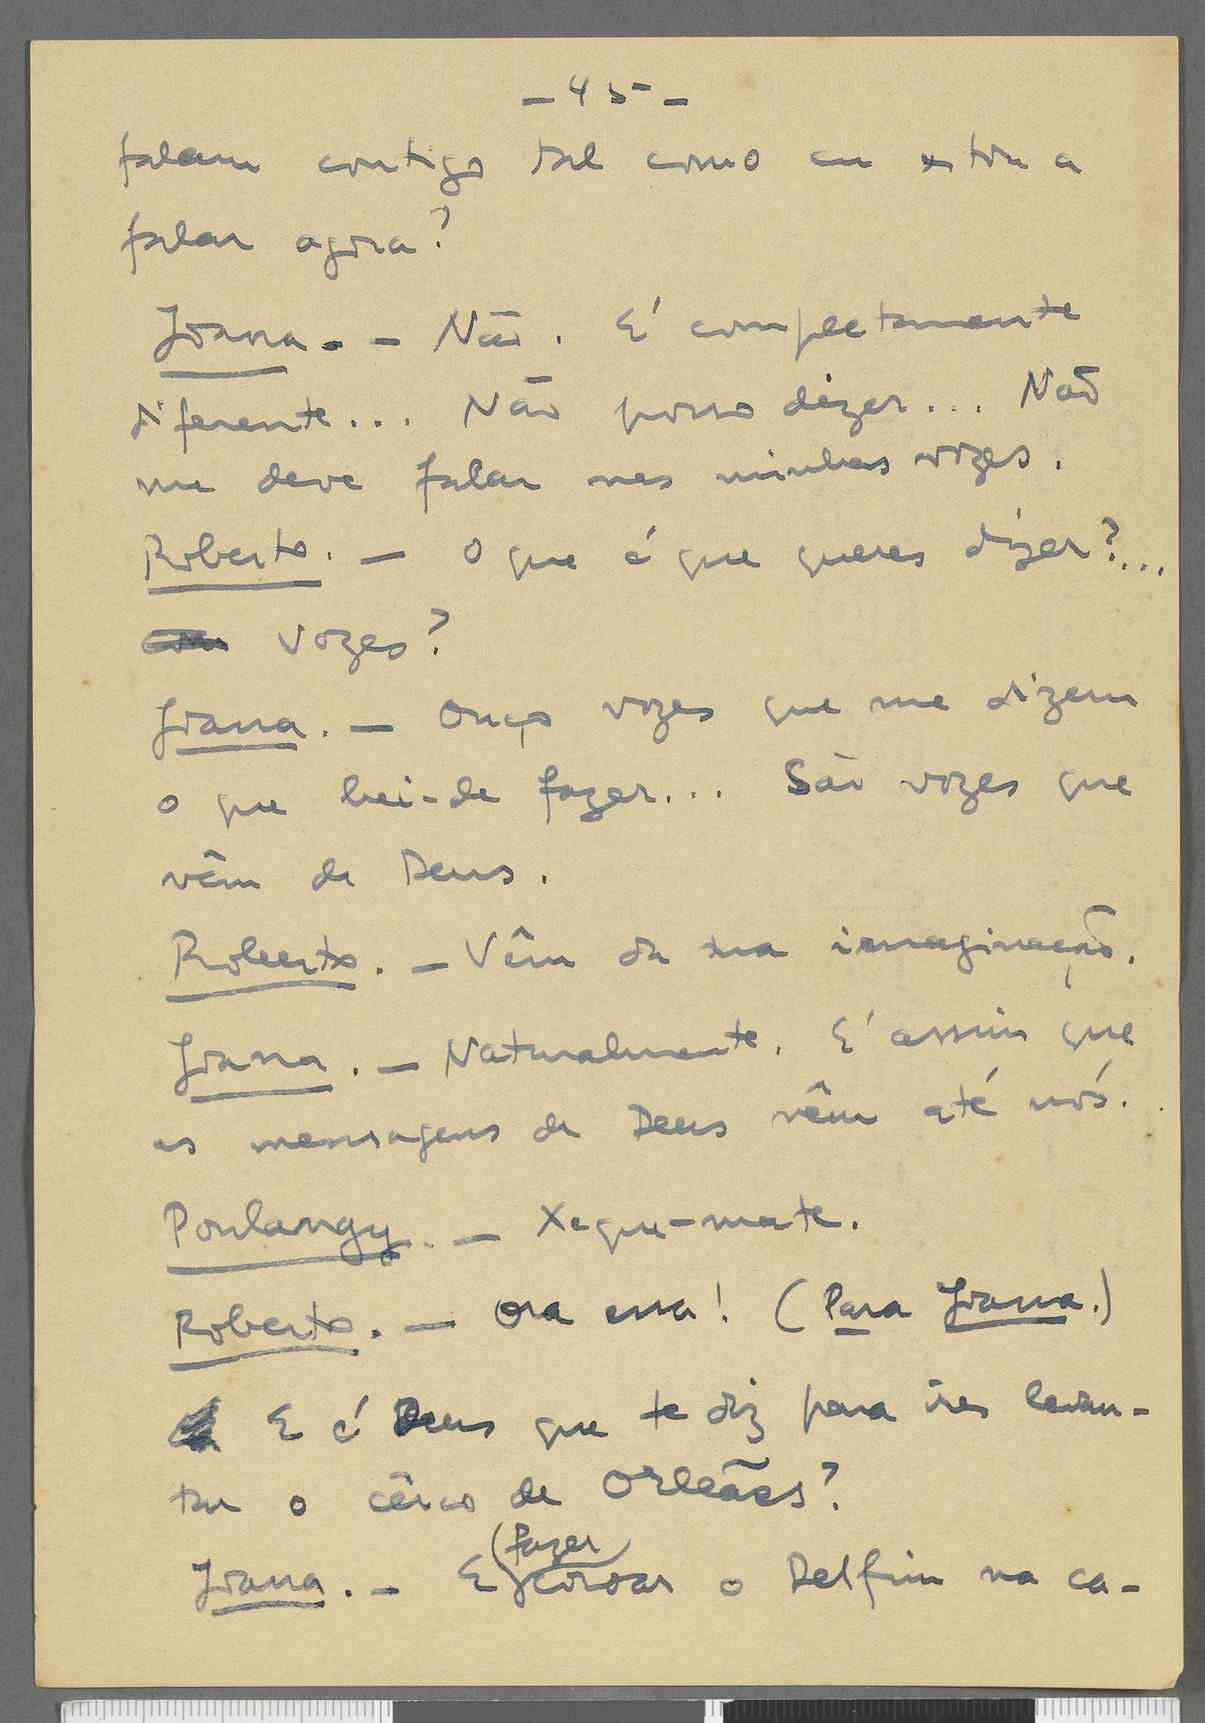 – 45 –
falam contigo tal como eu estou a
falar agora?
Joana. – Não. É completamente
diferente... Não posso dizer... Não
me deve falar nas minhas vozes.
Roberto. – O que é que queres dizer?...
vozes?
Joana. – Ouço vozes que me dizem
o que hei-de fazer... São vozes que
vêm de Deus.
Roberto. – Vêm da tua imaginação.
Joana. – Naturalmente. É assim que
as mensagens de Deus vêm até nós.
Poulangy. – Xeque-mate.
Roberto. – Ora essa! (Para Joana.)
E é Deus que te diz para ires levan-
tar o cêrco de Orleães?
fazer
Joana. – E coroar o Delfim na ca-